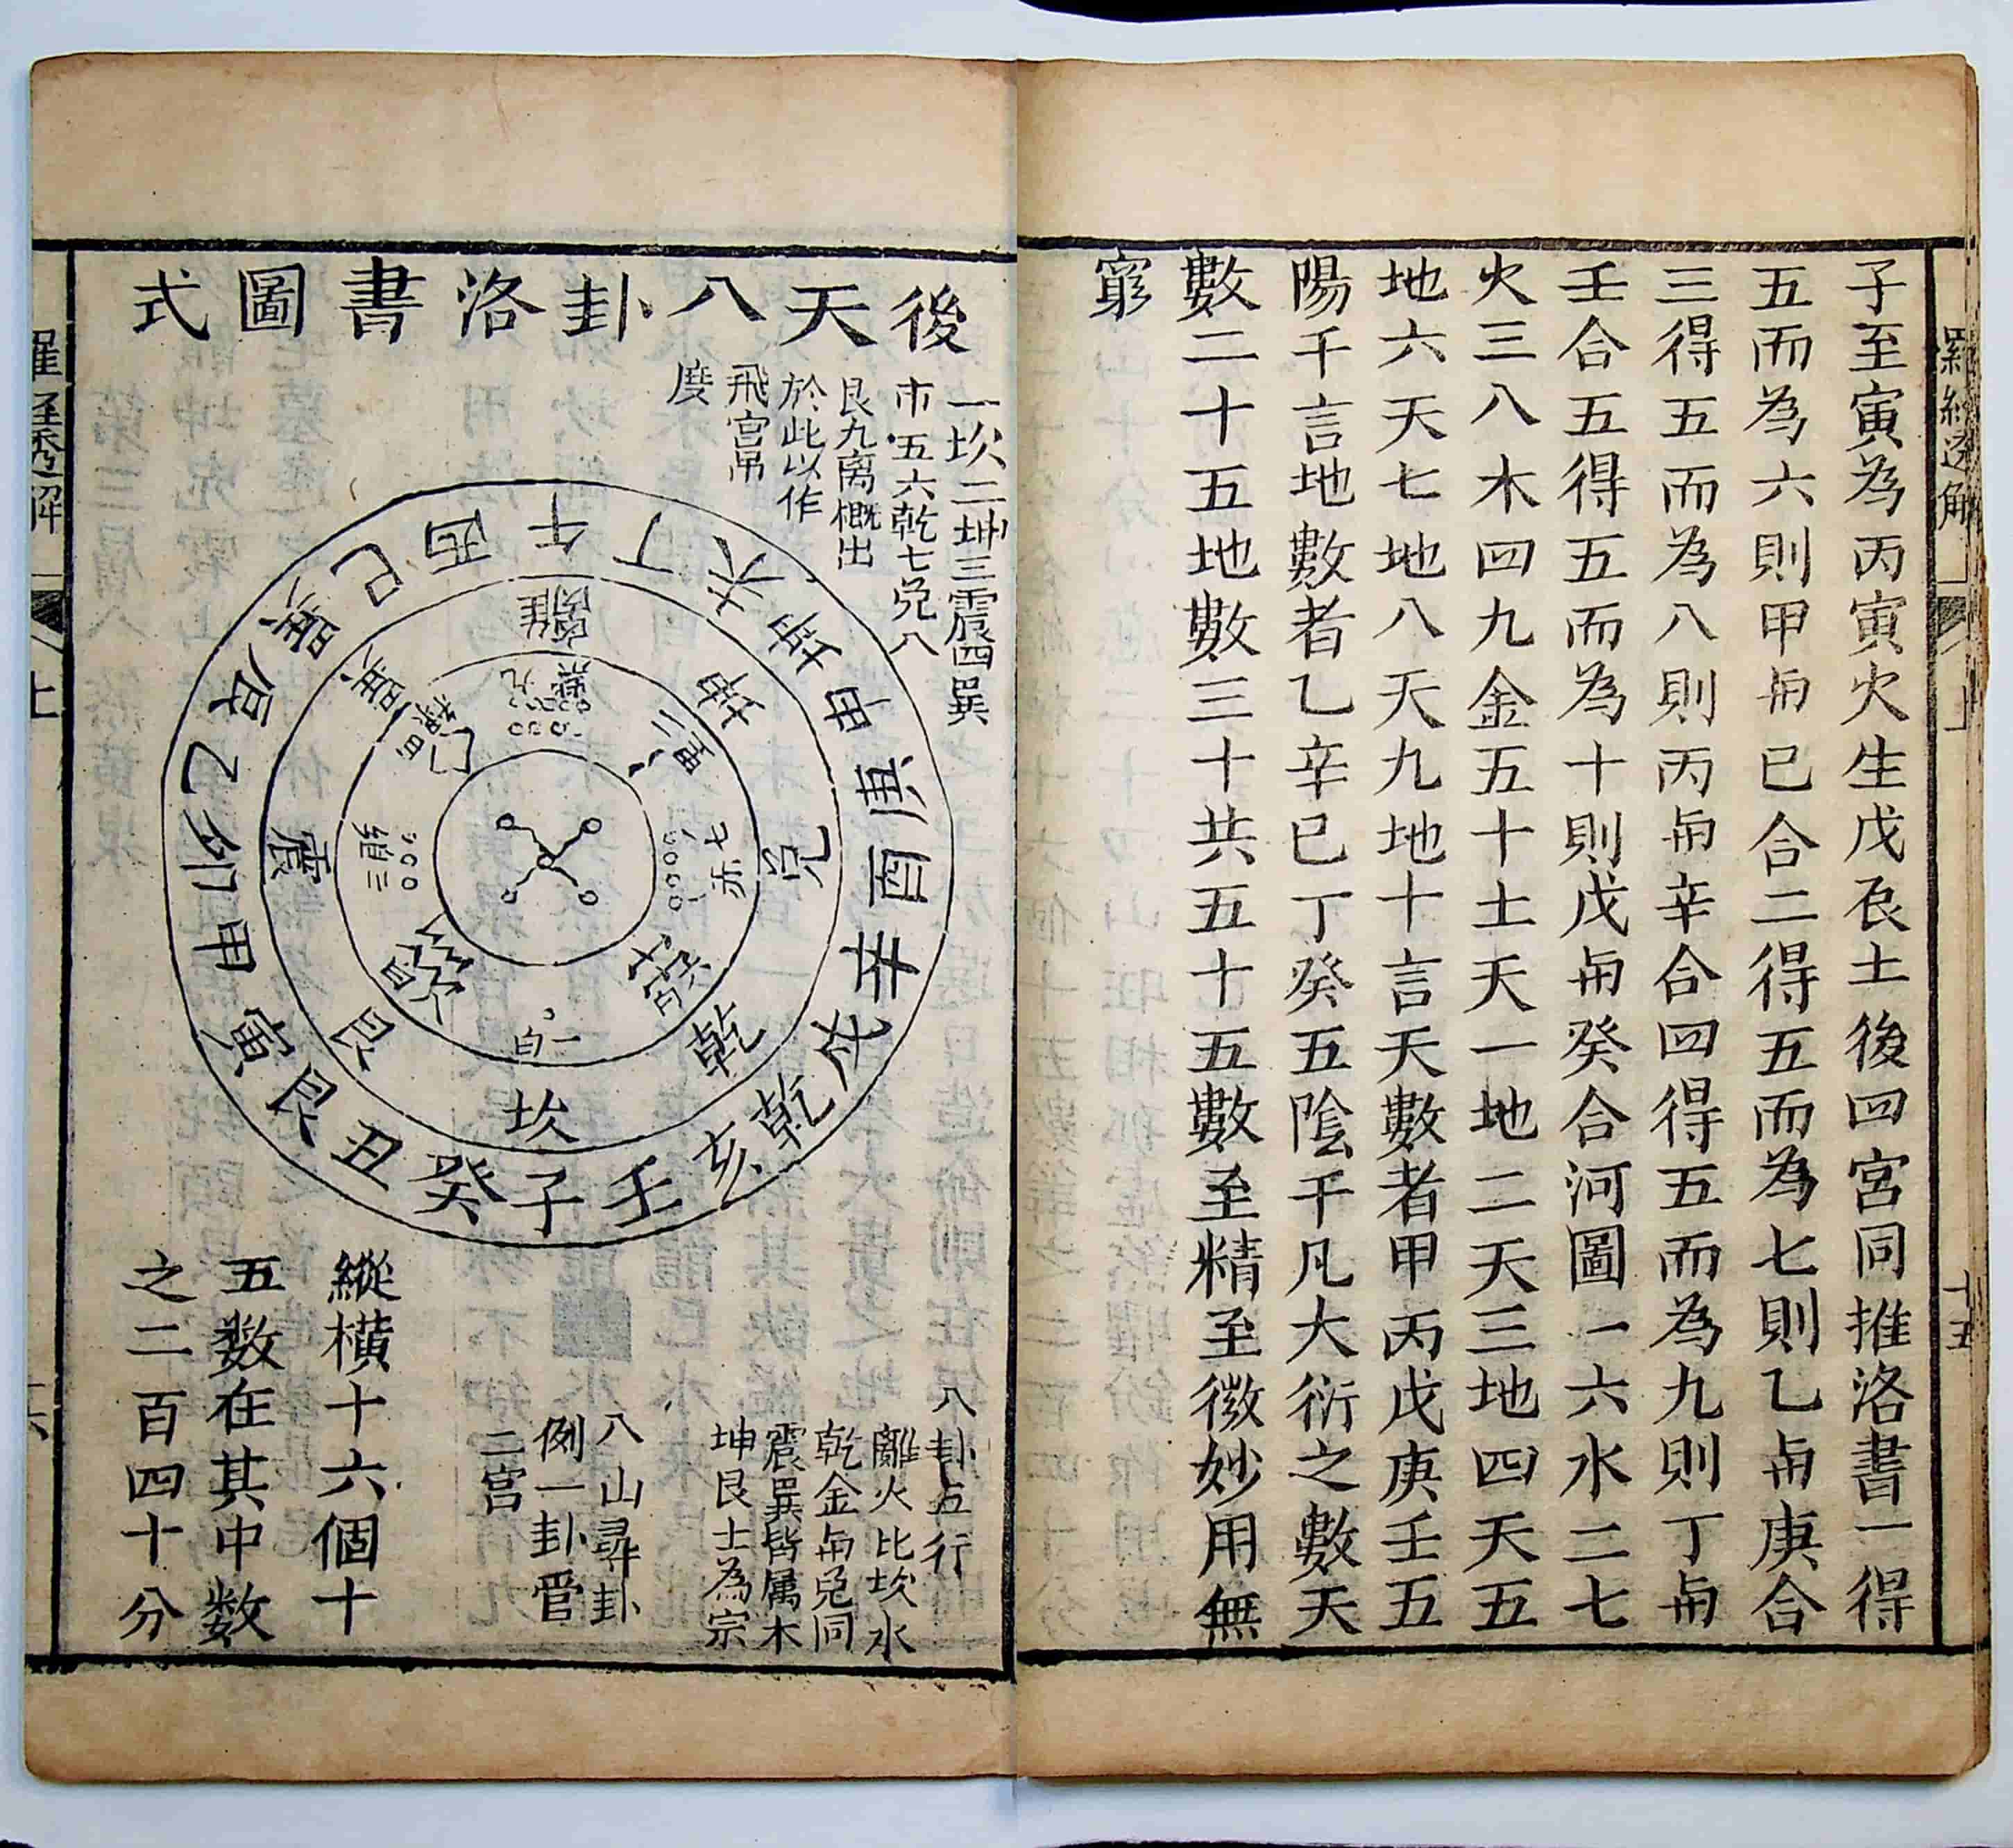 羅經透解
上
十五
子至寅為丙寅火生戊艮土後四宮同推洛書一得
五而為六則甲與己合二得五而為七則乙與庚合
三得五而為八則丙與辛合四得五而為九則丁與
壬合五得五而為十則戊與癸合河圖一六水二七
火三八木四九金五十土天一地二天三地四天五
地六天七地八天九地十言天數者甲丙戊庚壬五
陽干言地數者乙辛己丁癸五陰干凡大衍之數天
數二十五地數三十共五十五數至精至微妙用無
窮
後天八卦洛書圖式
一坎二坤三震四巽
市五六乾七兌八
艮九离概出
於此以作
飛宮吊
度
午丁未坤申庚酉辛戌乾亥壬子癸丑艮寅甲卯乙辰巽巳丙
離坤兌乾坎艮震巽
九紫
二黑
七赤
六白
一白
八白
三碧
四綠
八卦五行
離火比坎水
乾金與兌同
震巽皆属木
坤艮土為宗
八山尋卦
例一卦管
二宮
縱橫十六個十
五数在其中数
之二百四十分
羅經透解
上
十六